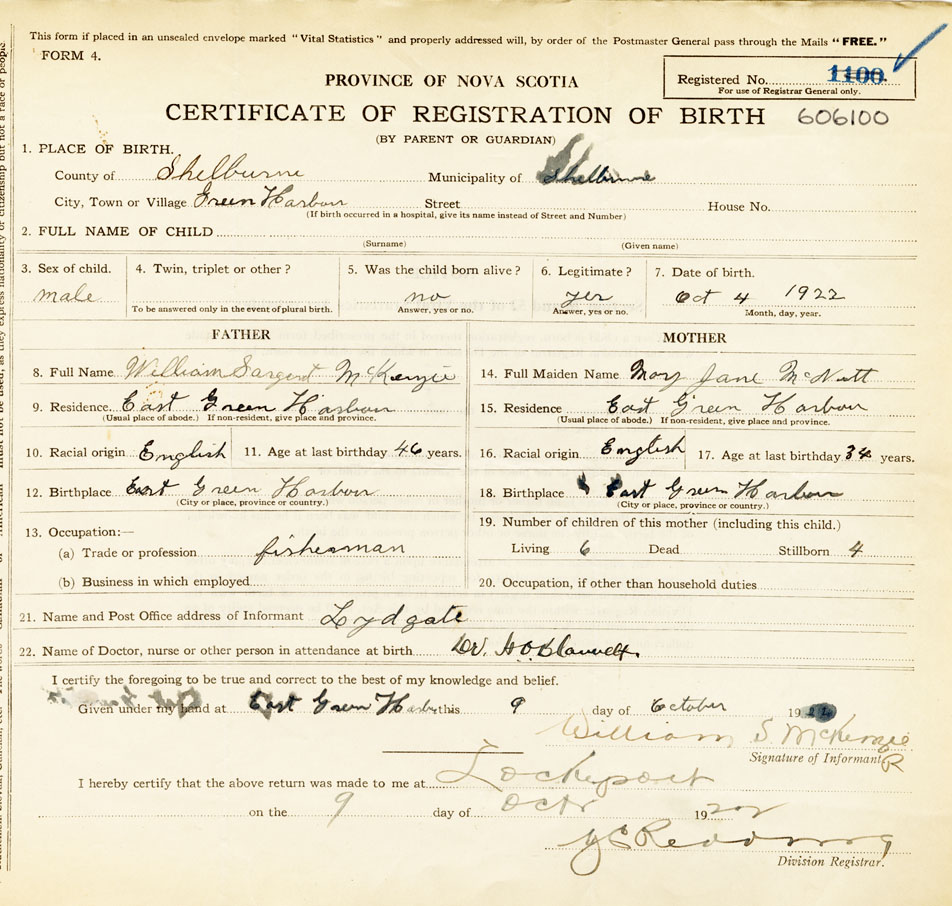 This form if placed in an unsealed envelope marked "Vital Statistics" and properly addressed will, by order of the Postmaster General pass through the Mails "FREE."
FORM 4.
Registered No. 1100.
For use of Registrar General only.
PROVINCE OF NOVA SCOTIA
CERTIFICATE OF REGISTRATION OF BIRTH 606100
(BY PARENT OR GUARDIAN)
1. PLACE OF BIRTH.
County of Shelburne Municipality of Shelburne
City, Town or Village Green Harbour Street House No.
(If birth occurred in a hospital, give its name instead of Street and Number)
2. FULL NAME OF CHILD
(Surname) (Given name)
3. Sex of child. 4. Twin, triplet or other? 5. Was the child born alive? 6. Legitimate? 7. Date of birth.
male no yes Oct 4 1922
To be answered only in the event of plural birth. Answer, yes or no. Answer, yes or no. Month, day, year.
FATHER
8. Full Name William Sargent McKenzie
9. Residence East Green Harbour
(Usual place of abode.) If non-resident, give place and province.
10. Racial origin English 11. Age at last birthday 46 years.
12. Birthplace East Green Harbour
(City or place, province or country.)
13. Occupation:—
(a) Trade or profession fisherman
(b) Business in which employed
MOTHER
14. Full Maiden Name Mary Jane McNutt
15. Residence East Green Harbour
(Usual place of abode.) If non-resident, give place and province.
16. Racial origin English 17. Age at last birthday 34 years.
18. Birthplace East Green Harbour
(City or place, province or country.)
19. Number of children of this mother (including this child.)
Living 6 Dead Stillborn 4
20. Occupation, if other than household duties
21. Name and Post Office address of Informant Lydgate
22. Name of Doctor, nurse or other person in attendance at birth Dr.
I certify the foregoing to be true and correct to the best of my knowledge and belief.
Given under my hand at East Green Harbr this 9 day of October 19
William S. McKenzie
Signature of Informant R
I hereby certify that the above return was made to me at Lockeport
on the 9 day of Octr 1922
Division Registrar.